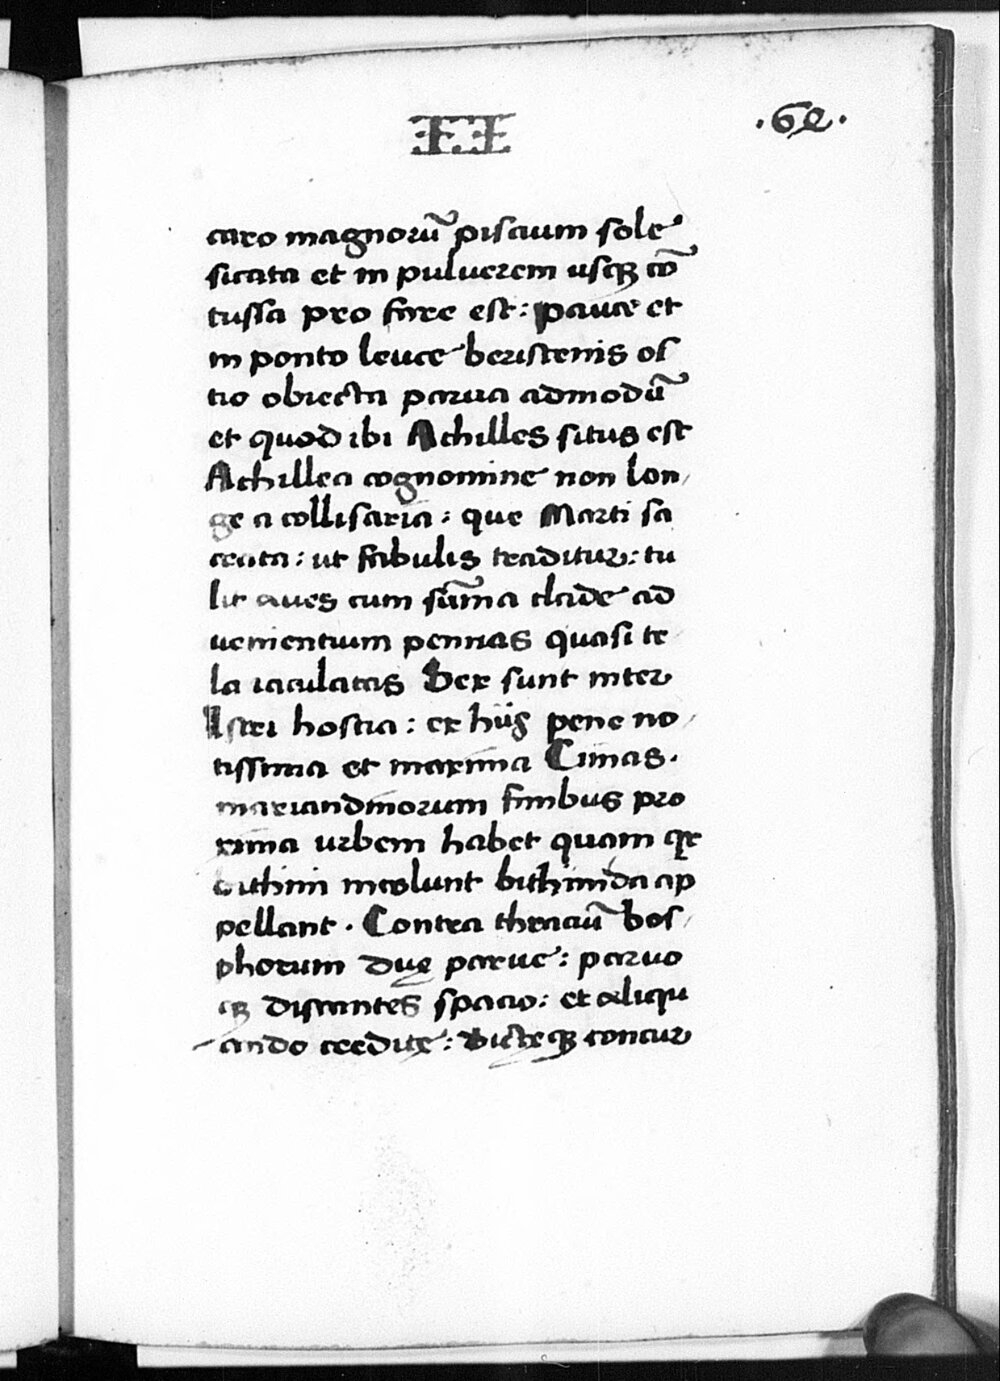 III
.62.
caro magnorũ piscium sole
siccata et in pulverem usqꝫ cõ
tussa pro farre est: pauce et
in ponto leuce beristenis os
tio obiecta parua admodũ
et quod ibi Achilles situs est
Achillea cognomine non lon
ge a collisaria: que Marti sa
crata: ut fabulis traditur: tu
lit aues cum sũma clade ad
uenientium pennas quasi te
la iaculatas Sex sunt inter
Istri hostia: ex hiis pene no
tissima et maxima
mariandinorum finibus pro
xima urbem habet quam
bithini incolunt bithinida ap
pellant. Contra thraciũ bos
phorum duę parue: paruo
qꝫ distantes spacio: et aliqu
ando creditę: dictęqꝫ concur